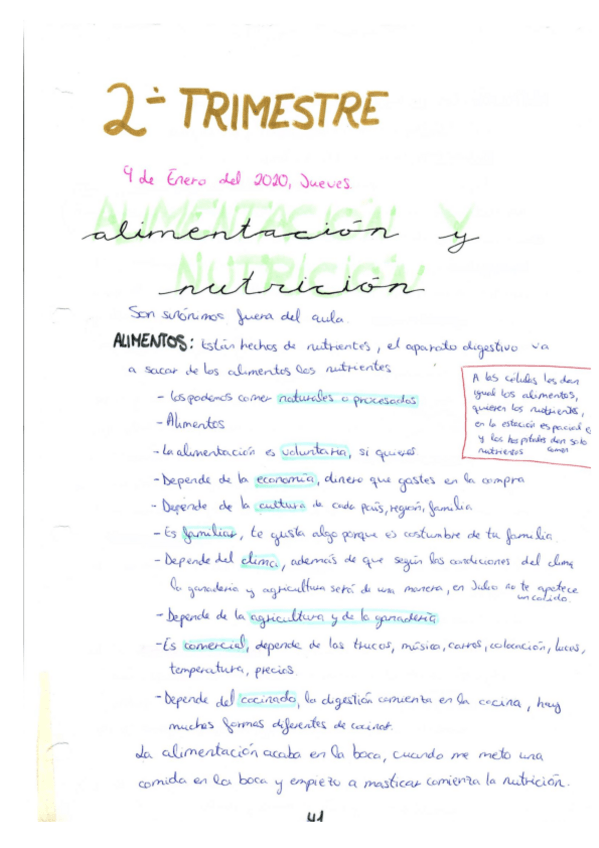 2º TRIMESTRE
9 de Enero del 2020, Jueves.
ALIMENTACIÓN Y
alimentación y
NUTRICIÓN
nutrición
Son sinónimos fuera del aula.
ALIMENTOS: Están hechos de nutrientes, el aparato digestivo va
a sacar de los alimentos los nutrientes
A las células les dan
igual los alimentos,
quieren los nutrientes,
en la estación espacial
y los hospitales dan solo
nutrientes comer
- Los podemos comer naturales o procesados
- Alimentos
- La alimentación es voluntaria, si quieres
- Depende de la economía, dinero que gastes en la compra
- Depende de la cultura de cada país, región, familia
- Es familiar, te gusta algo porque es costumbre de tu familia
- Depende del clima, además de que según las condiciones del clima
la ganadería y agricultura será de una manera, en Julio no te apetece
un cocido.
- Depende de la agricultura y de la ganadería
- Es comercial, depende de los trucos, música, carros, colocación, luces,
temperatura, precios.
- Depende del cocinado, la digestión comienza en la cocina, hay
muchas formas diferentes de cocinar.
La alimentación acaba en la boca, cuando me meto una
comida en la boca y empiezo a masticar comienza la nutrición.
41